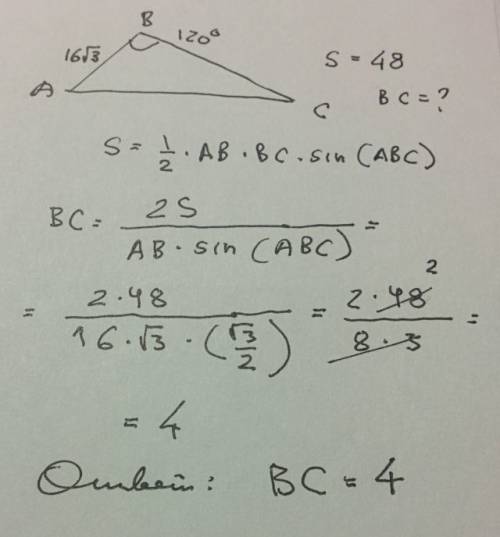 B
16√3
120°
A
C
S = 48
BC = ?
S = 1/2 · AB · BC · sin (ABC)
BC = 2S / (AB · sin (ABC)) =
= 2·48 / (16·√3·(√3/2)) = 2·48 / (8·3) =
2
= 4
Ответ: BC = 4